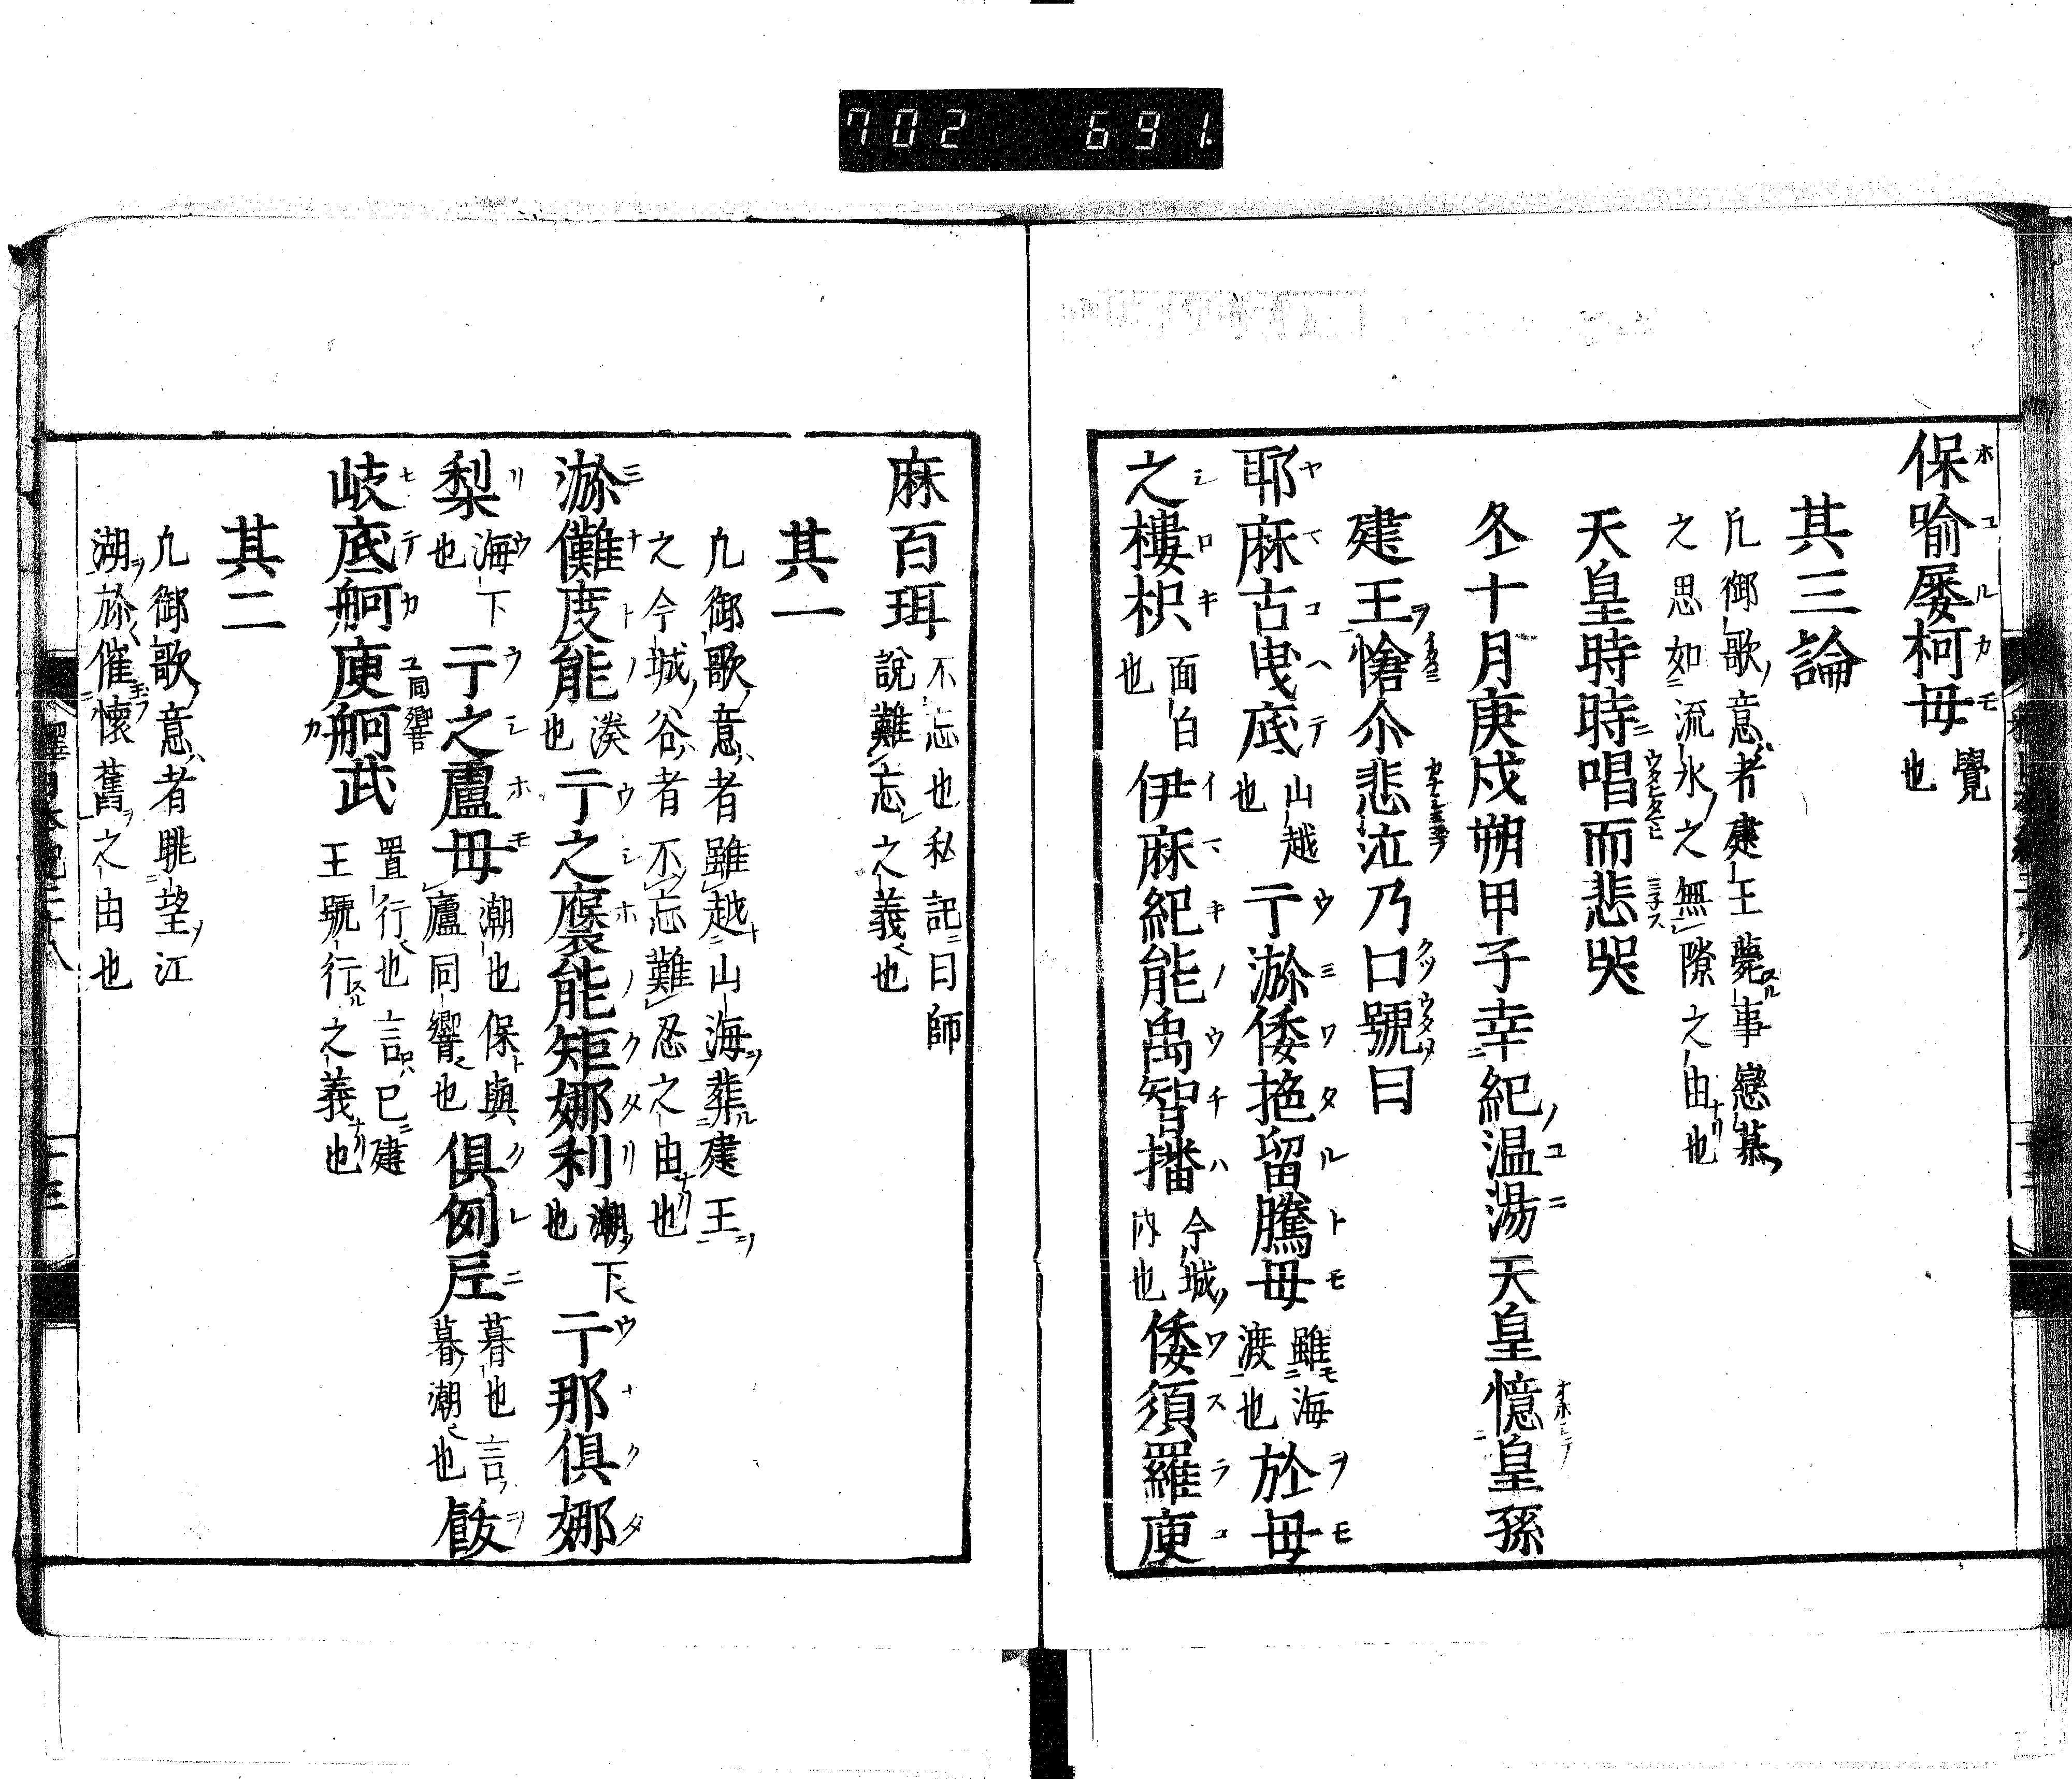 702 691
保喻屡柯毋 覺也
其三論
凢御歌意者建王薨事戀慕
之思如流水之無隙之由也
天皇時時唱而悲哭
冬十月庚戌朔甲子幸紀温湯天皇憶皇孫
建王愴尒悲泣乃口號曰
耶麻古曳底 山越也 于瀰倭拖留騰毋 雖海渡也 於毋
之樓枳 面白也 伊麻紀能禹智播 今城内也 倭須羅庾
麻百珥 不忘也私記曰師説難忘之義也
其一
凢御歌意者雖越山海葬建王
之今城谷者不忘難忍之由也
瀰儺度能 湊也 于之褒能矩娜利 潮下也 于那俱娜
梨 海下也 于之盧毋 潮也保與盧同響也 俱例尼 暮也言暮潮也 飫
岐底舸庾舸武 置行也言已建王號行之義也
其二
凢御歌意者眺望江
湖於催懷舊之由也
十三